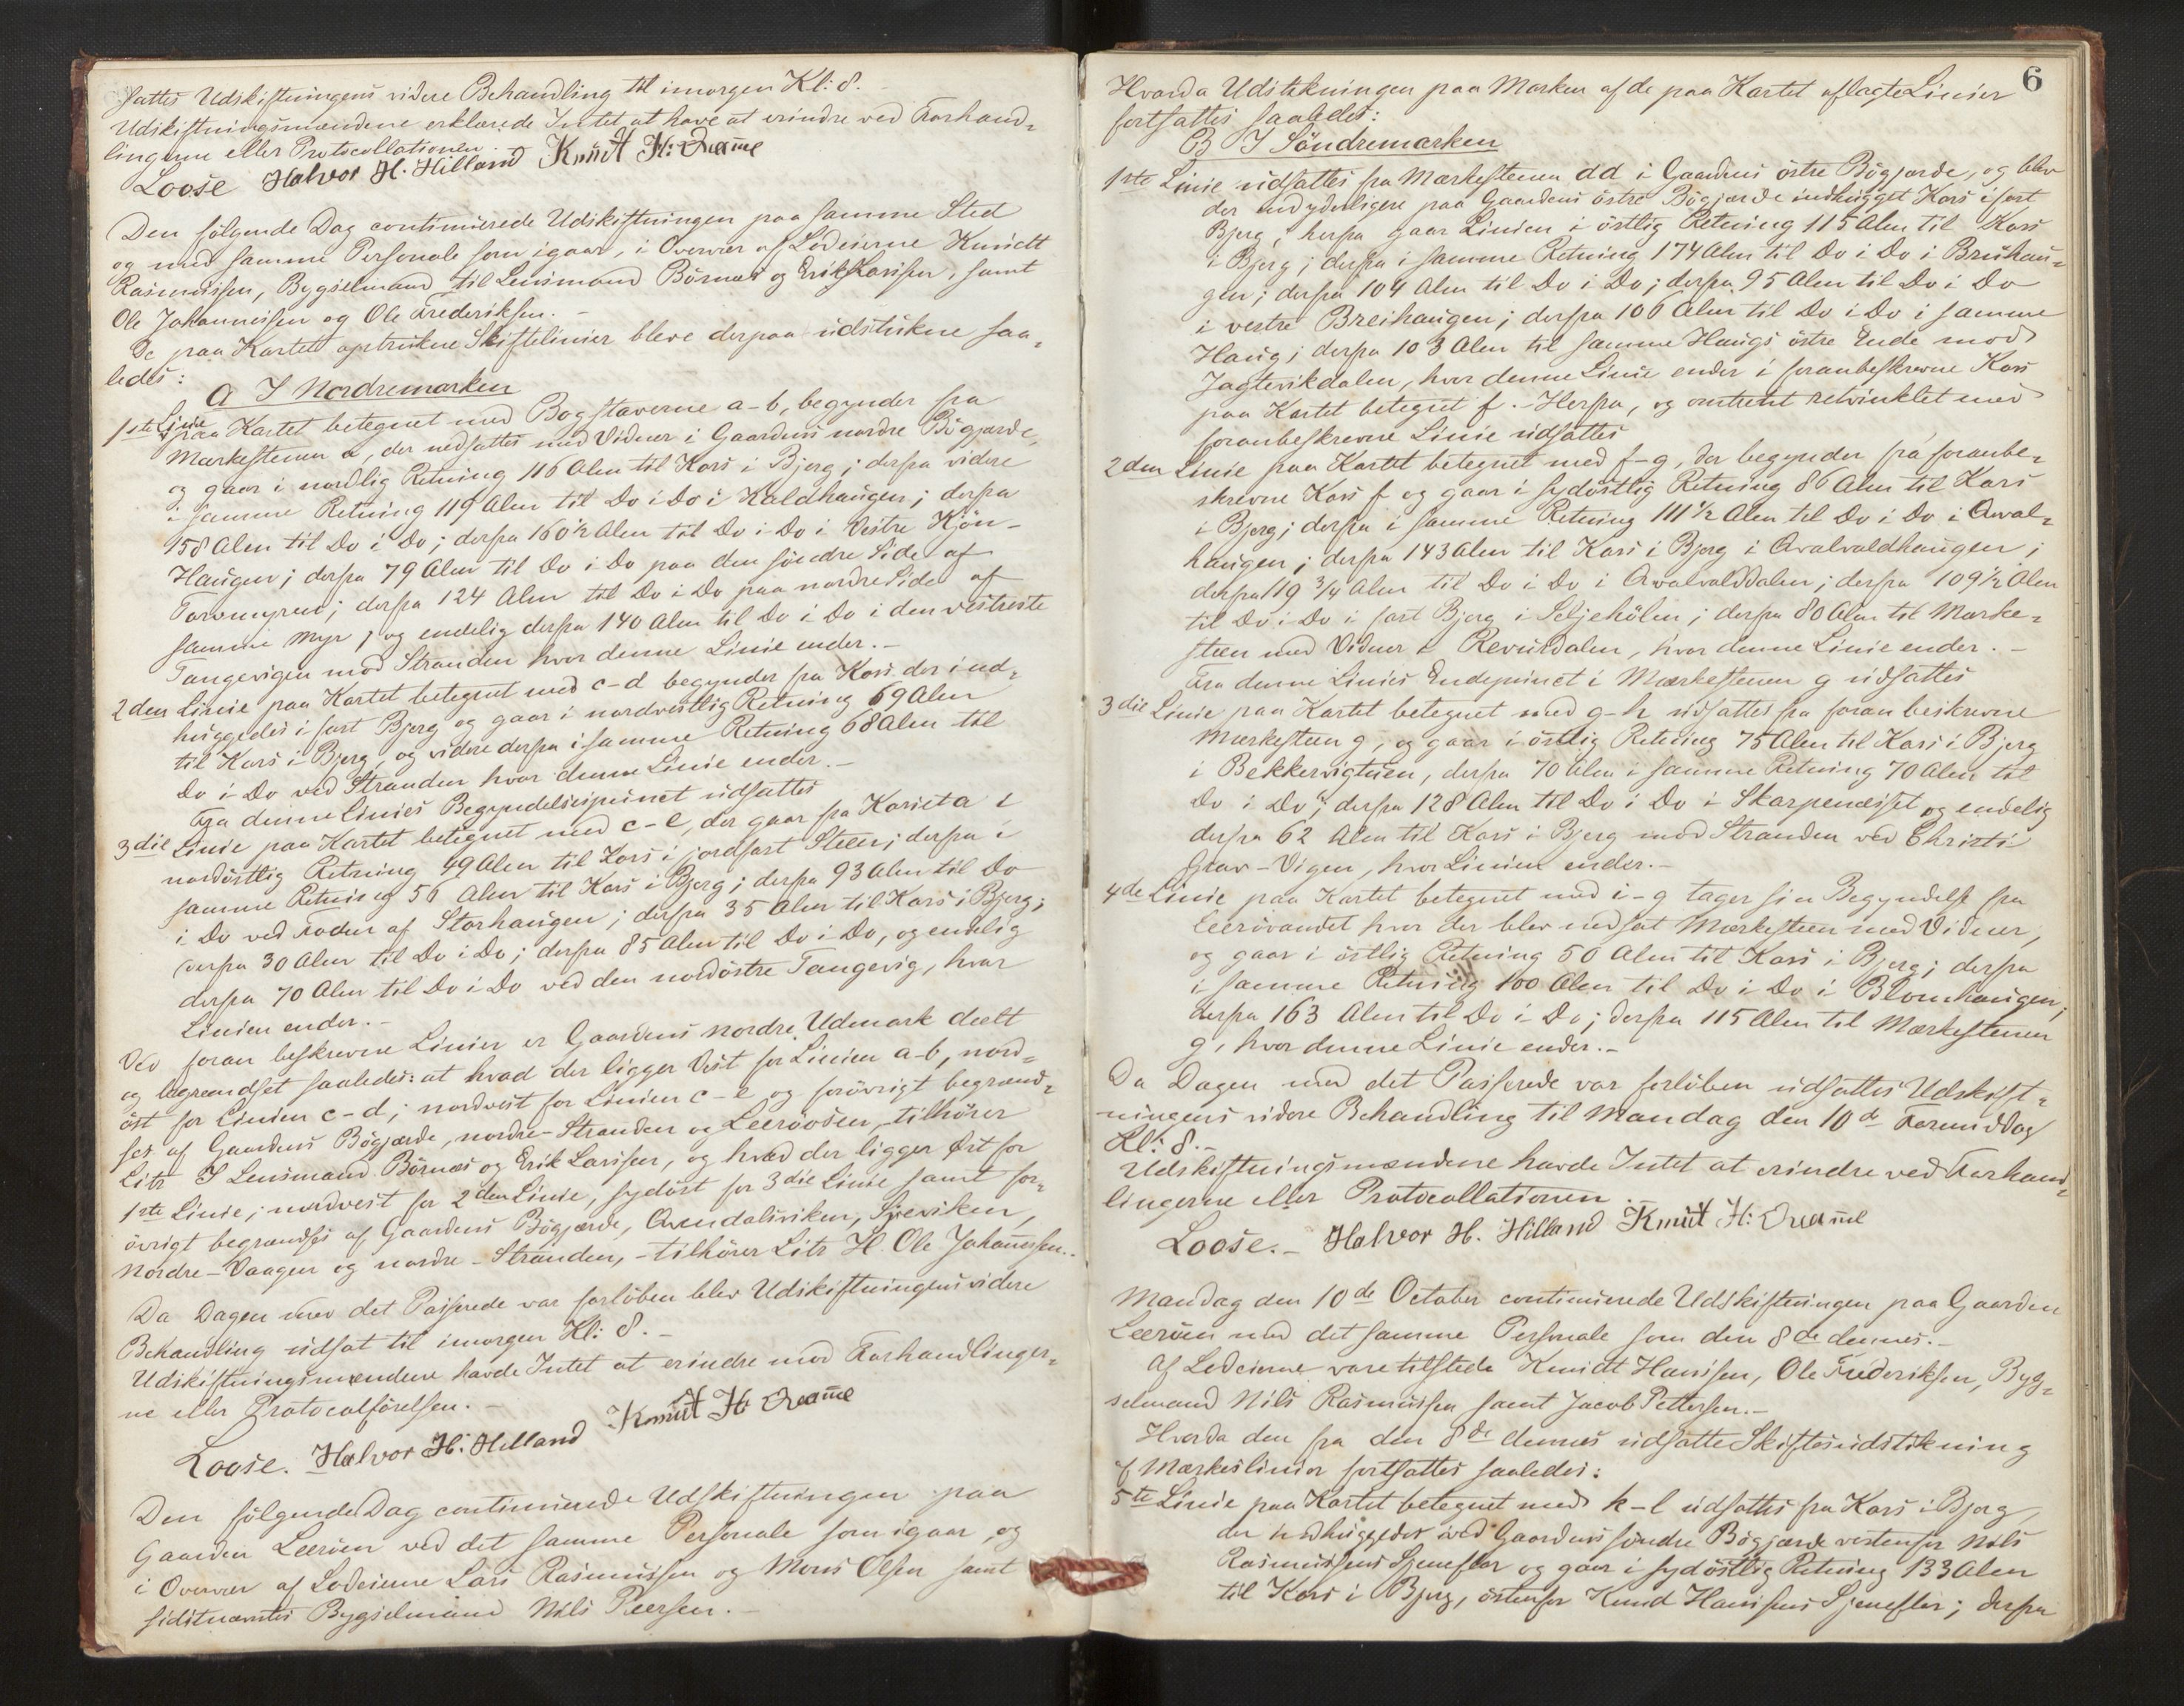 sattes Udskiftningens videre Behandling til imorgen Kl: 8. -
Udskiftningsmændene erklærede Intet at have at erindre ved Forhand-
lingerne eller Protocollationen.
Loose Halvor H. Hilland Knut H: Qvame
Den følgende Dag continuerede Udskiftningen paa samme Sted
og med samme Personale som igaar, i Overvær af Lodeierne Knudt
Rasmussen, Bygselmand til Lensmand Börnæs og Erik Larssen, samt
Ole Johannessen og Ole Frederiksen. -
De paa Kartet optrukne Skiftelinier bleve derpaa udstukne saa-
ledes:
A I Nordremarken
1ste Linie paa Kartet betegnet med Bogstaverne a-b, begynder fra
Mærkestenen a, der nedsattes med Vidner i Gaardens nordre Bögjærde,
og gaar i nordlig Retning 116 Alen til Kors i Bjerg; derfra videre
i samme Retning 119 Alen til Do i Do i Kaldhaugen; derfra
158 Alen til Do i Do; derfra 160½ Alen til Do i Do i Vestre Kjön-
Haugen; derfra 79 Alen til Do i Do paa den söndre Side af
Torvmyren; derfra 124 Alen til Do i Do paa nordre Side af
samme Myr; og endelig derfra 140 Alen til Do i Do i den vestreste
Tangevigen mod Stranden hvor denne Linie ender. -
2den Linie paa Kartet betegnet med c-d begynder fra Kors der ind-
huggedes i fast Bjerg og gaar i nordvestlig Retning 69 Alen
til Kors i Bjerg, og videre derfra i samme Retning 68 Alen til
Do i Do ved Stranden hvor denne Linie ender. -
Fra denne Linies Begyndelsespunct udsattes
3die Linie paa Kartet betegnet med c-e, der gaar fra Korset a i
nordöstlig Retning 49 Alen til Kors i jordfast Steen; derfra i
samme Retning 56 Alen til Kors i Bjerg; derfra 93 Alen til Do
i Do ved Foden af Storhaugen; derfra 35 Alen til Kors i Bjerg;
derfra 30 Alen til Do i Do; derfra 85 Alen til Do i Do, og endelig
derfra 70 Alen til Do i Do ved den nordöstre Tangevig, hvor
Linien ender. -
Ved foran beskrevne Linier er Gaardens nordre Udmark deelt
og begrændset saaledes: at hvad der ligger Vest for Linien a-b, nord-
öst for Linien c-d; nordvest for Linien c-e og forövrigt begrænd-
ses af Gaardens Bögjærde, nordre-Stranden og Leeröosen, tilhörer
Litr I Lensmand Börnæs og Erik Larssen, og hvad der ligger Øst for
1ste Linie; nordvest for 2den Linie, sydöst for 3die Linie samt for-
övrigt begrændses af Gaardens Bögjærde, Qvendalsviken, Sjeviken,
Nordre-Vaagen og nordre-Stranden, - tilhörer Litr H. Ole Johannessen. -
Da Dagen med det Passerede var forlöben blev Udskiftningens videre
Behandling udsat til imorgen Kl: 8. -
Udskiftningsmændene havde Intet at erindre mod Forhandlinger-
ne eller Protocolförelsen. -
Loose. Halvor H: Hilland Knut H: Qvame
Den fölgende Dag continuerede Udskiftningen paa
Gaarden Leeröen ved det samme Personale som igaar, og
i Overvær af Lodeierne Lars Rasmussen og Mons Olsen samt
sidstnævntes Bygselmand Nils Peersen. -
6
Hvorda Udstikningen paa Marken af de paa Kartet aflagte Linier
fortsattes saaledes:
B I Söndremarken
1ste Linie udsattes fra Mærkestenen dd i Gaardens östre Bögjærde, og blev
der end yderligere paa Gaardens östre Bögjærde indhugget Kors i fast
Bjerg; herfra gaar Linien i östlig Retning 115 Alen til Kors
i Bjerg; derfra i samme Retning 174 Alen til Do i Do i Bruhau-
gen; derfra 104 Alen til Do i Do; derfra 95 Alen til Do i Do
i vestre Breihaugen; derfra 106 Alen til Do i Do i samme
Haug; derfra 103 Alen til samme Haugs östre Ende mod
Jagtevikdalen, hvor denne Linie ender i foranbeskrevne Kors
paa Kartet betegnet f. - Herfra, og omtrent retvinklet med
foranbeskrevne Linie udsattes
2den Linie paa Kartet betegnet med f-g, der begynder fra foranbe-
skrevne Kors f og gaar i sydöstlig Retning 86 Alen til Kors
i Bjerg; derfra i samme Retning 111½ Alen til Do i Do i Qval-
haugen; derfra 143 Alen til Kors i Bjerg i Qvalvaldhaugen;
derfra 119 3/4 Alen til Do i Do i Qvalvalddalen; derfra 109½ Alen
til Do i Do i fast Bjerg i Seljehölen; derfra 80 Alen til Mærke-
steen med Vidner i Revurdalen, hvor denne Linie ender. -
Fra denne Linies Endepunct i Mærkestenen g udsattes
3die Linie paa Kartet betegnet med g-h udsattes fra foran beskrevne
Mærkesteen g, og gaar i östlig Retning 75 Alen til Kors i Bjerg
i Bekkervigtuen, derfra 70 Alen i samme Retning 70 Alen til
Do i Do; derfra 128 Alen til Do i Do i Skarpenæsset og endelig
derfra 62 Alen til Kors i Bjerg mod Stranden ved Christi
Grav-Vigen, hvor Linien ender. -
4de Linie paa Kartet betegnet med i-g tager sin Begyndelse fra
Leerövandet hvor der blev nedsat Mærkesteen med Vidner,
og gaar i östlig Retning 50 Alen til Kors i Bjerg; derfra
i samme Retning 100 Alen til Do i Do i Blomhaugen;
derfra 163 Alen til Do i Do; derfra 115 Alen til Mærkestenen
g, hvor denne Linie ender. -
Da Dagen med det Passerede var forlöben udsattes Udskift-
ningens videre Behandling til Mandag den 10de Formiddag
Kl: 8. -
Udskiftningsmændene havde Intet at erindre ved Forhand-
lingerne eller Protocollationen.
Loose. - Halvor H. Hilland Knut H: Qvame
Mandag den 10de October continuerede Udskiftningen paa Gaarden
Leeröen med det samme Personale som den 8de dennes. -
Af Lodeierne vare tilstede Knudt Hanssen, Ole Frederiksen, Byg-
selmand Nils Rasmussen samt Jacob Pettersen. -
Hvorda den fra den 8de dennes udsatte Skiftesudstikning
af Mærkeslinier fortsattes saaledes:
5te Linie paa Kartet betegnet med k-l udsattes fra Kors i Bjerg,
der indhuggedes ved Gaardens söndre Bögjærde vestenfor Nils
Rasmussens Sjeneflor og gaar i sydöstlig Retning 133 Alen
til Kors i Bjerg, östenfor Knud Hanssens Sjeneflor; derfra